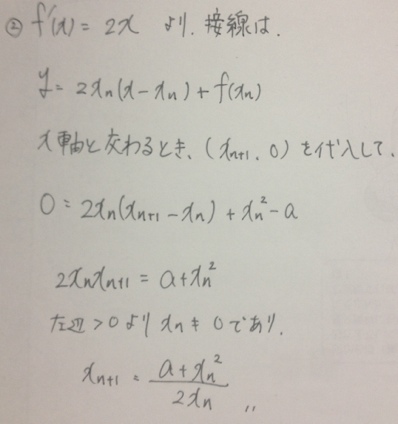 ② f'(x) = 2x より、接線は、
y = 2xₙ(x - xₙ) + f(xₙ)
x軸と交わるとき、(xₙ₊₁, 0) を代入して、
0 = 2xₙ(xₙ₊₁ - xₙ) + xₙ² - a
2xₙxₙ₊₁ = a + xₙ²
左辺 > 0 より xₙ ≠ 0 であり、
xₙ₊₁ = (a + xₙ²) / 2xₙ 〃